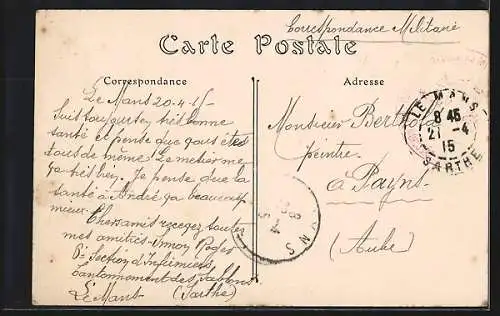 Correspondance Militaire
Carte Postale
Correspondance
Adresse
Le Mans 20-4-15
Suis toujours très bonne
santé et pense que vous êtes
tous de même. Le métier me
va très bien. Je pense que la
santé à André va beaucoup
mieux.
Chers amis recevez toutes
mes amitiés - Roger
Section d'Infirmiers
cantonnement des Sablons
Le Mans (Sarthe)
Monsieur Berthold
peintre
à Payns
(Aube)
LE MANS
8 45
21 -4
15
SARTHE